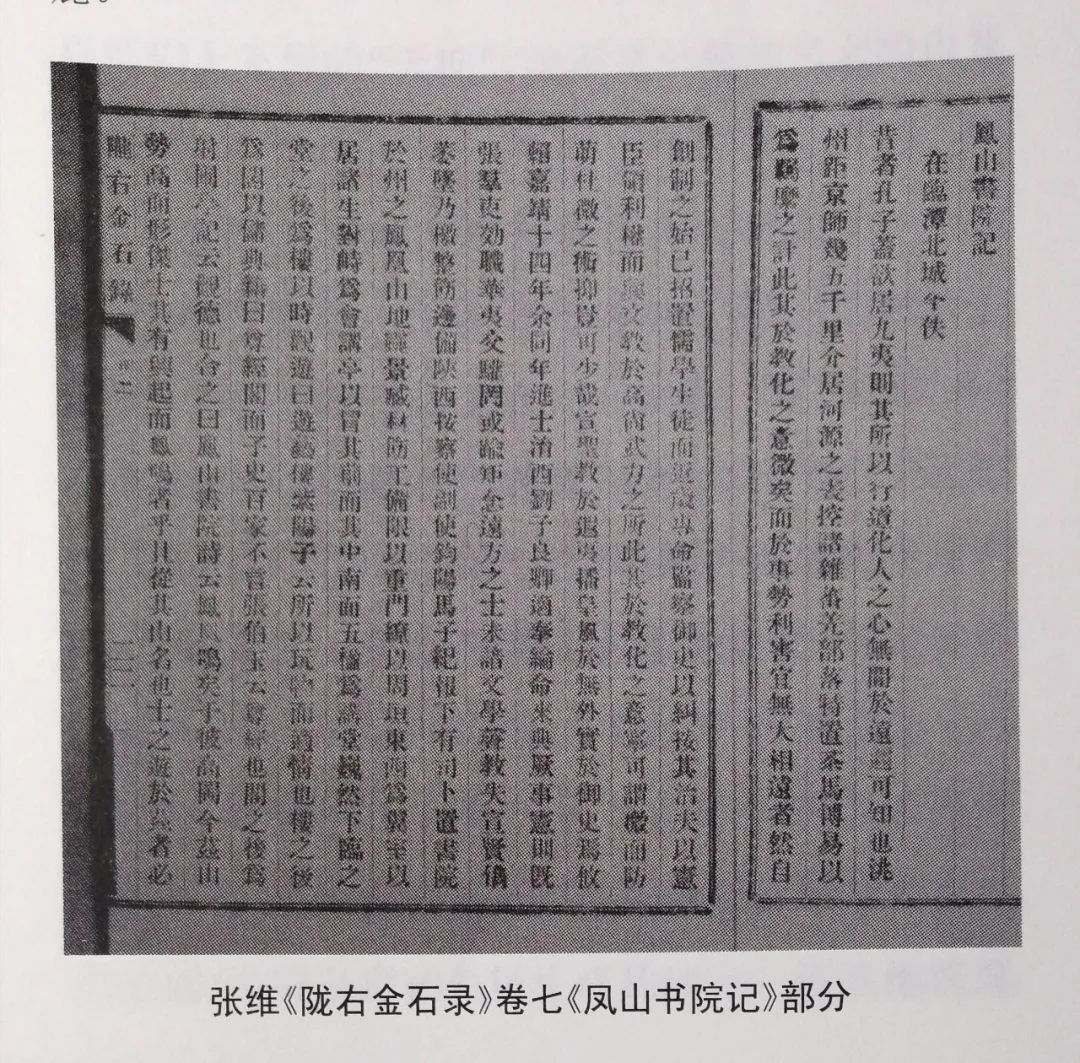 鳳山書院記
在臨潭北城今佚
昔者孔子蓋欲居九夷則其所以行道化人之心無間於遠邇可知也洮
州距京師幾五千里介居河源之表控諸雜番羌部落特置茶馬博易以
爲羈縻之計此其於教化之意微矣而於事勢利害宜無大相遠者然自
創制之始已招置儒學生徒而近歲專命監察御史以糾按其治夫以憲
臣領利權而興文教於高尚武力之所此其於教化之意寧可謂微而防
萌杜微之術抑豈可少哉宣聖教於遐夷播皇風於無外實於御史焉攸
賴嘉靖十四年余同年進士治西劉子良卿適奉綸命來典厥事憲則既
張羣吏効職華夷交驩罔或踰矩念遠方之士未諳文學聲教失宣賢儁
蒸墜乃檄整飭邊備陝西按察使副使鈞陽馬子紀報下有司卜置書院
於州之鳳凰山地 景臧材飭工備限以重門繚以周垣東西爲翼室以
居諸生對峙爲會講亭以冒其前而其中南面五楹爲講堂巍然下臨之
堂之後爲樓以時觀遊曰遊藝樓紫陽子云所以玩物而適情也樓之後
爲閣以儲典籍曰尊經閣而子史百家不言張伯玉云尊經也閣之後爲
射圃學記云觀德也合之曰鳳山書院詩云鳳凰鳴矣于彼高岡今茲山
勢高而形傑士其有興起而鳳鳴者乎且從其山名也士之遊於茲者必
隴右金石錄
张维《陇右金石录》卷七《凤山书院记》部分